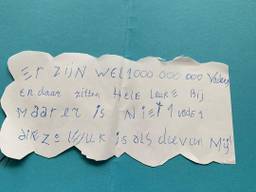 Er zijn wel 1000 000 000 Vaders
En daar zitten hele leuke Bij
maar er is niet 1 vader
die zo leuk is als die van Mij